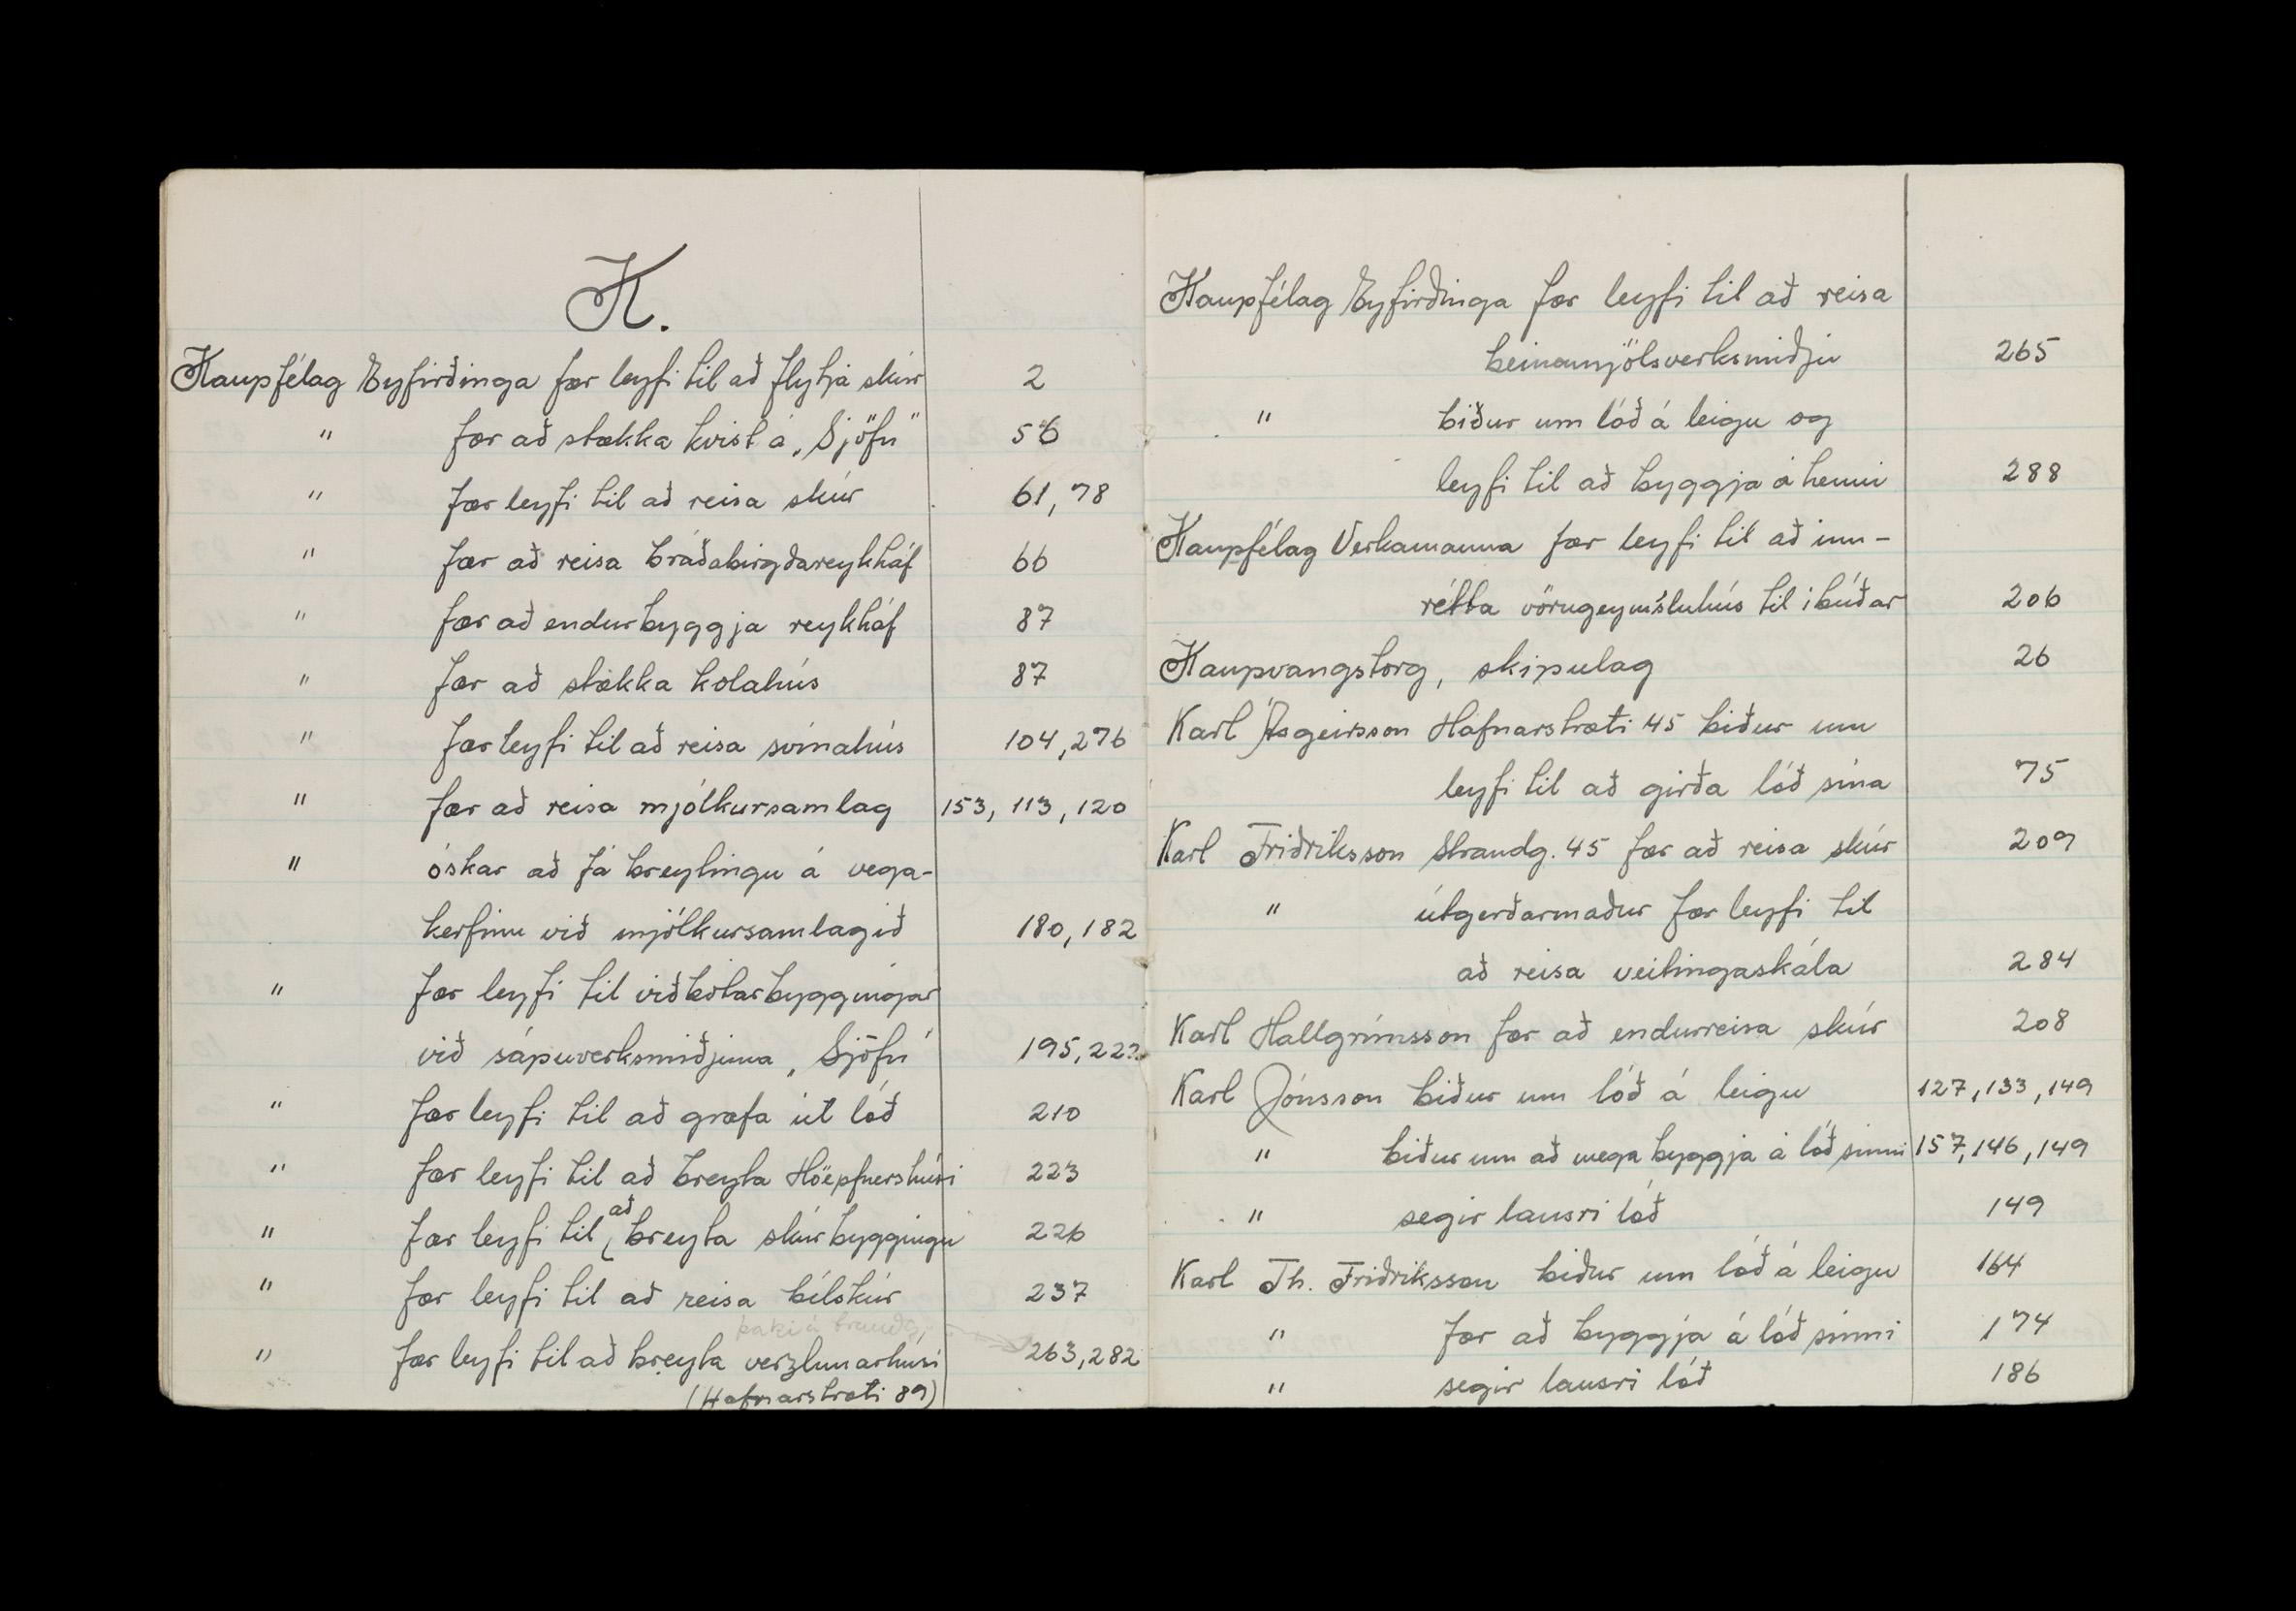 K.
Kaupfélag Eyfirðinga fær leyfi til að flytja skúr 2
" fær að stækka kvist á „Sjöfn" 56
" fær leyfi til að reisa skúr 61, 78
" fær að reisa bráðabirgðareykháf 66
" fær að endurbyggja reykháf 87
" fær að stækka kolahús 87
" fær leyfi til að reisa svínahús 104, 276
" fær að reisa mjólkursamlag 153, 113, 120
" óskar að fá breytingu á vega-
kerfinu við mjólkursamlagið 180, 182
" fær leyfi til viðbótarbyggingar
við sápuverksmiðjuna „Sjöfn" 195, 222
" fær leyfi til að grafa út lóð 210
" fær leyfi til að breyta Höepfnershúsi 223
" fær leyfi til að breyta skúrbyggingu 226
" fær leyfi til að reisa bílskúr 237
þaki á
" fær leyfi til að breyta verzlunarhúsi 263, 282
(Hafnarstræti 89)
Kaupfélag Eyfirðinga fær leyfi til að reisa
beinamjölsverksmiðju 265
" biður um lóð á leigu og
leyfi til að byggja á henni 288
Kaupfélag Verkamanna fær leyfi til að inn-
rétta vörugeymsluhús til íbúðar 206
Kaupvangstorg, skipulag 26
Karl Ásgeirsson Hafnarstræti 45 biður um
leyfi til að girða lóð sína 75
Karl Friðriksson Strandg. 45 fær að reisa skúr 209
" útgerðarmaður fær leyfi til
að reisa veitingaskála 284
Karl Hallgrímsson fær að endurreisa skúr 208
Karl Jónsson biður um lóð á leigu 127, 133, 149
" biður um að mega byggja á lóð sinni 157, 146, 149
" segir lausri lóð 149
Karl Th. Friðriksson biður um lóð á leigu 164
" fær að byggja á lóð sinni 174
" segir lausri lóð 186